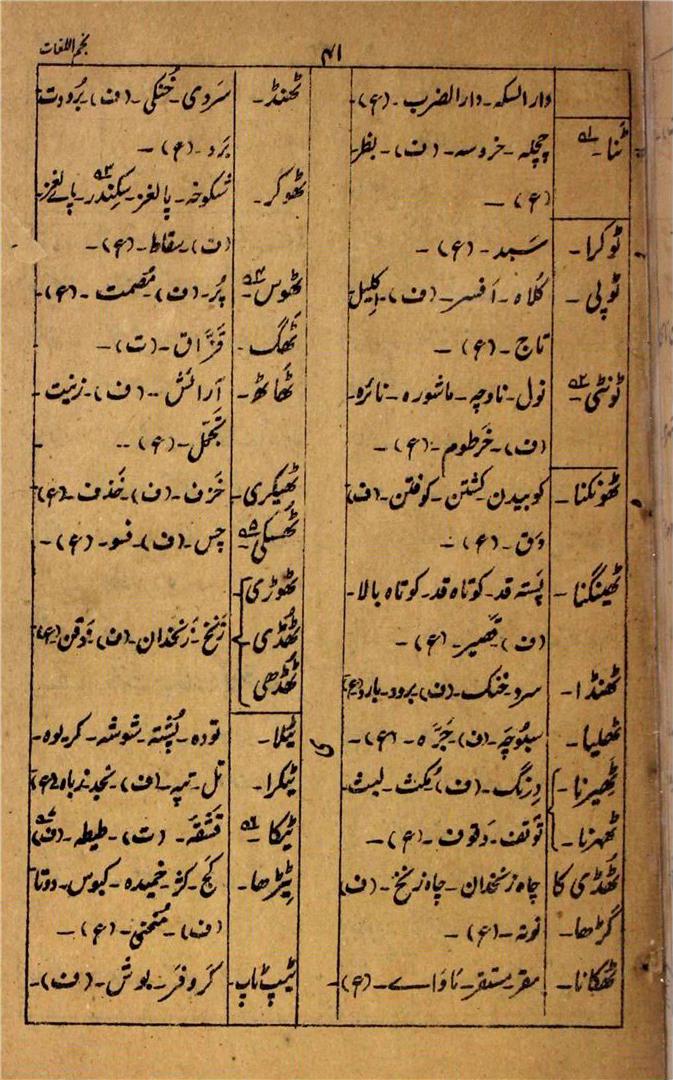 نجم اللغات
۴۱
دارالسکہ۔ دارالضرب۔ (ع)۔
ٹنا۔ چچلہ۔ خروسہ۔ (ف)۔ بظر
(ع)۔
ٹوکرا۔ سَبد۔ (ع)۔
ٹوپی۔ کُلاہ۔ اَفسر۔ (ف)۔ اِکلیل
تاج۔ (ع)۔
ٹونٹی۔ نول۔ ناوچہ۔ ماشورہ۔ نائزہ۔
(ف)۔ خرطوم۔ (ع)۔
ٹھونکنا۔ کوبیدن۔ کشتن۔ کوفتن۔ (ف)
دق۔ (ع)۔
ٹھینگنا۔ پَستہ قد۔ کوتاہ قد۔ کوتاہ بالا۔
(ف) قصیر۔ (ع)۔
ٹھنڈا۔ سرد۔ خنک۔ (ف) برود۔ بارد (ع)
ٹھلیا۔ سبوچَہ۔ (ف)۔ جَرَّہ۔ (ع)۔
ٹھیرنا۔ دِرنگ۔ (ف) مکث۔ لبث۔
ٹھہرنا۔ توقف۔ وقوف۔ (ع)۔
ٹھڈی کا چاہ زنخدان۔ چاہ زنخ۔ (ف)
گڑھا۔ نونہ۔ (ع)۔
ٹھکانا۔ مقر۔ مستقر۔ ماواے۔ (ع)۔
ٹھنڈ۔ سَردی۔ خُنکی۔ (ف) بُرودت
بَرد۔ (ع)۔
ٹھوکر۔ شکوخہ۔ پالغز۔ سِکندر۔ پاے لغز۔
(ف) سقاط۔ (ع)۔
ٹھوس۔ پُر۔ (ف)۔ مُصمت۔ (ع)۔
ٹھگ۔ قزّاق۔ (ت)۔
ٹھاٹھ۔ آرائش۔ (ف)۔ زینت۔
تجمّل۔ (ع)۔
ٹھیکری۔ خَزف۔ (ف)۔ خَذف۔ (ع)
ٹھسکی۔ چس۔ (ف)۔ فسو۔ (ع)۔
ٹھوڑی
ٹھڈی زَنخ۔ زَنخدان۔ (ف)۔ ذوقن (ع)
ٹھڈھی
ٹیلا۔ تودہ۔ پُشتہ۔ شوشہ۔ کریوہ۔
ٹیکرا۔ تل۔ تپہ۔ (ف)۔ نجد۔ زباہ (ع)
ٹیکا۔ قشقہ۔ (ت)۔ طیطہ۔ (ف)
ٹیڑھا۔ کج۔ کژ۔ خمیدہ۔ کبوس۔ دوتا
(ف)۔ مُنحنی۔ (ع)۔
ٹیپ ٹاپ۔ کروفر۔ بوش۔ (ف)۔